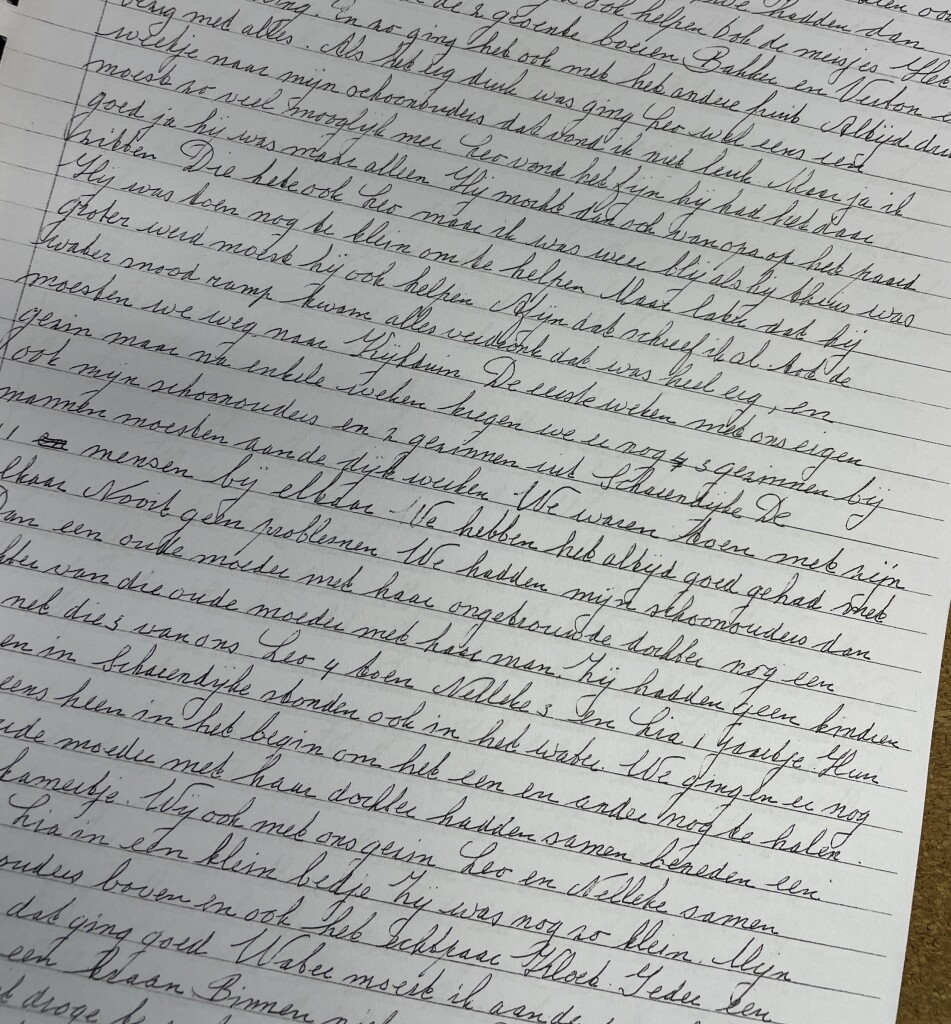 ook helpen Ook de meisjes
de 2 gezonte boeien Bakker en Viston
ding. En zo ging het ook met het andere fruit Altijd druk
bezig met alles. Als het erg druk was ging Leo wel eens een
weekje naar mijn schoonouders dat vond ik niet leuk. Maar ja ik
moest zo veel mooglijk mee Leo vond het fijn hij had het daar
goed ja hij was maar alleen Hij mocht dan ook van opa op het paard
zitten Die hete ook Leo maar ik was weer blij als hij thuis was
Hij was toen nog te klein om te helpen Maar later dat hij
groter werd moest hij ook helpen Afijn dat schreef ik al. Tot de
water snood ramp kwam alles verdronk dat was heel erg, en
moesten we weg naar Kijkduin De eerste weken met ons eigen
gezin maar na enkele weken kregen we er nog 3 gezinnen bij
ook mijn schoonouders en 2 gezinnen uit Scharendijke De
mannen moesten aan de dijk werken We waren toen met zijn
11 mensen bij elkaar - We hebben het altijd goed gehad met
elkaar Nooit geen problemen We hadden mijn schoonouders dan
Dan een oude moeder met haar ongetrouwde dochter nog een
van die oude moeder met haar man. Zij hadden geen kinderen
net die 3 van ons Leo 4 toen Nelleke 3 en Lia 1 jaartje. Hun
en in Scharendijke stonden ook in het water. We gingen er nog
eens heen in het begin om het een en ander nog te halen.
oude moeder met haar dochter hadden samen beneden een
kamertje. Wij ook met ons gezin Leo en Nelleke samen
Lia in een klein bedje Zij was nog zo klein. Mijn
ouders boven en ook het echtpaar Kloet. Ieder een
dat ging goed Water moest ik aan de
een kraan Binnen
droge